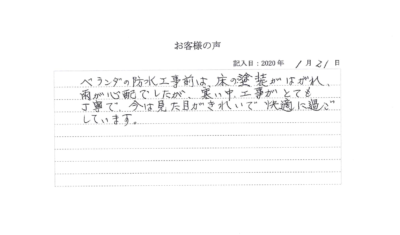 お客様の声
記入日：2020年 1月21日
ベランダの防水工事前は、床の塗装がはがれ、
雨が心配でしたが、寒い中、工事がとても
丁寧で、今は見た目がきれいで快適に過ご
しています。